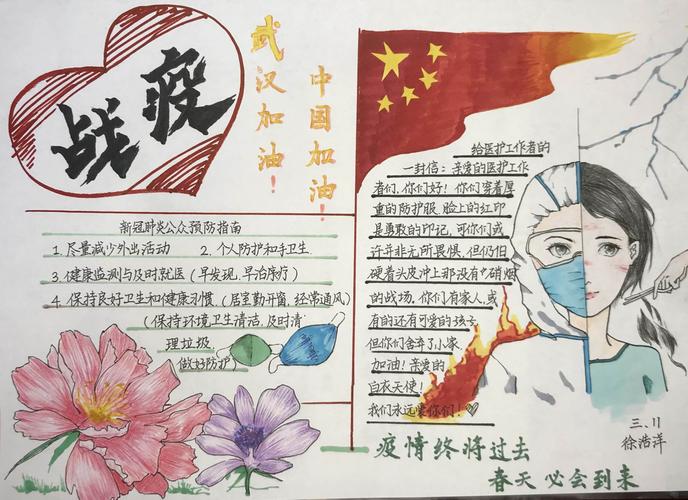 战疫
武汉加油！
中国加油！
新冠肺炎公众预防指南
1. 尽量减少外出活动 2. 个人防护和手卫生.
3. 健康监测与及时就医（早发现，早治疗）
4. 保持良好卫生和健康习惯（居室勤开窗，经常通风）
（保持环境卫生清洁，及时清
理垃圾，
做好防护）
给医护工作者的
一封信：亲爱的医护工作
者们，你们好！你们穿着厚
重的防护服，脸上的红印
是勇敢的印记，可你们或
许并非无所畏惧，但仍旧
硬着头皮冲上那没有硝烟
的战场，你们有家人，或
有的还有可爱的孩子
但你们舍弃了小家
加油！亲爱的
白衣天使！
我们永远爱你们！
疫情终将过去
春天必会到来
三、11
徐浩洋